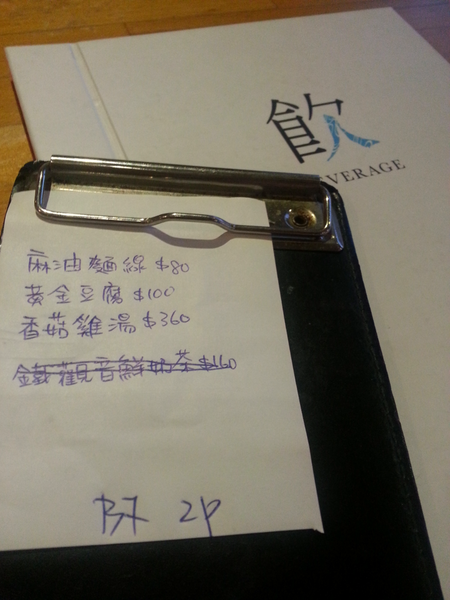 飲
BEVERAGE
麻油麵線 $80
黃金豆腐 $100
香菇雞湯 $360
鐵觀音鮮奶茶 $160
B7 2P